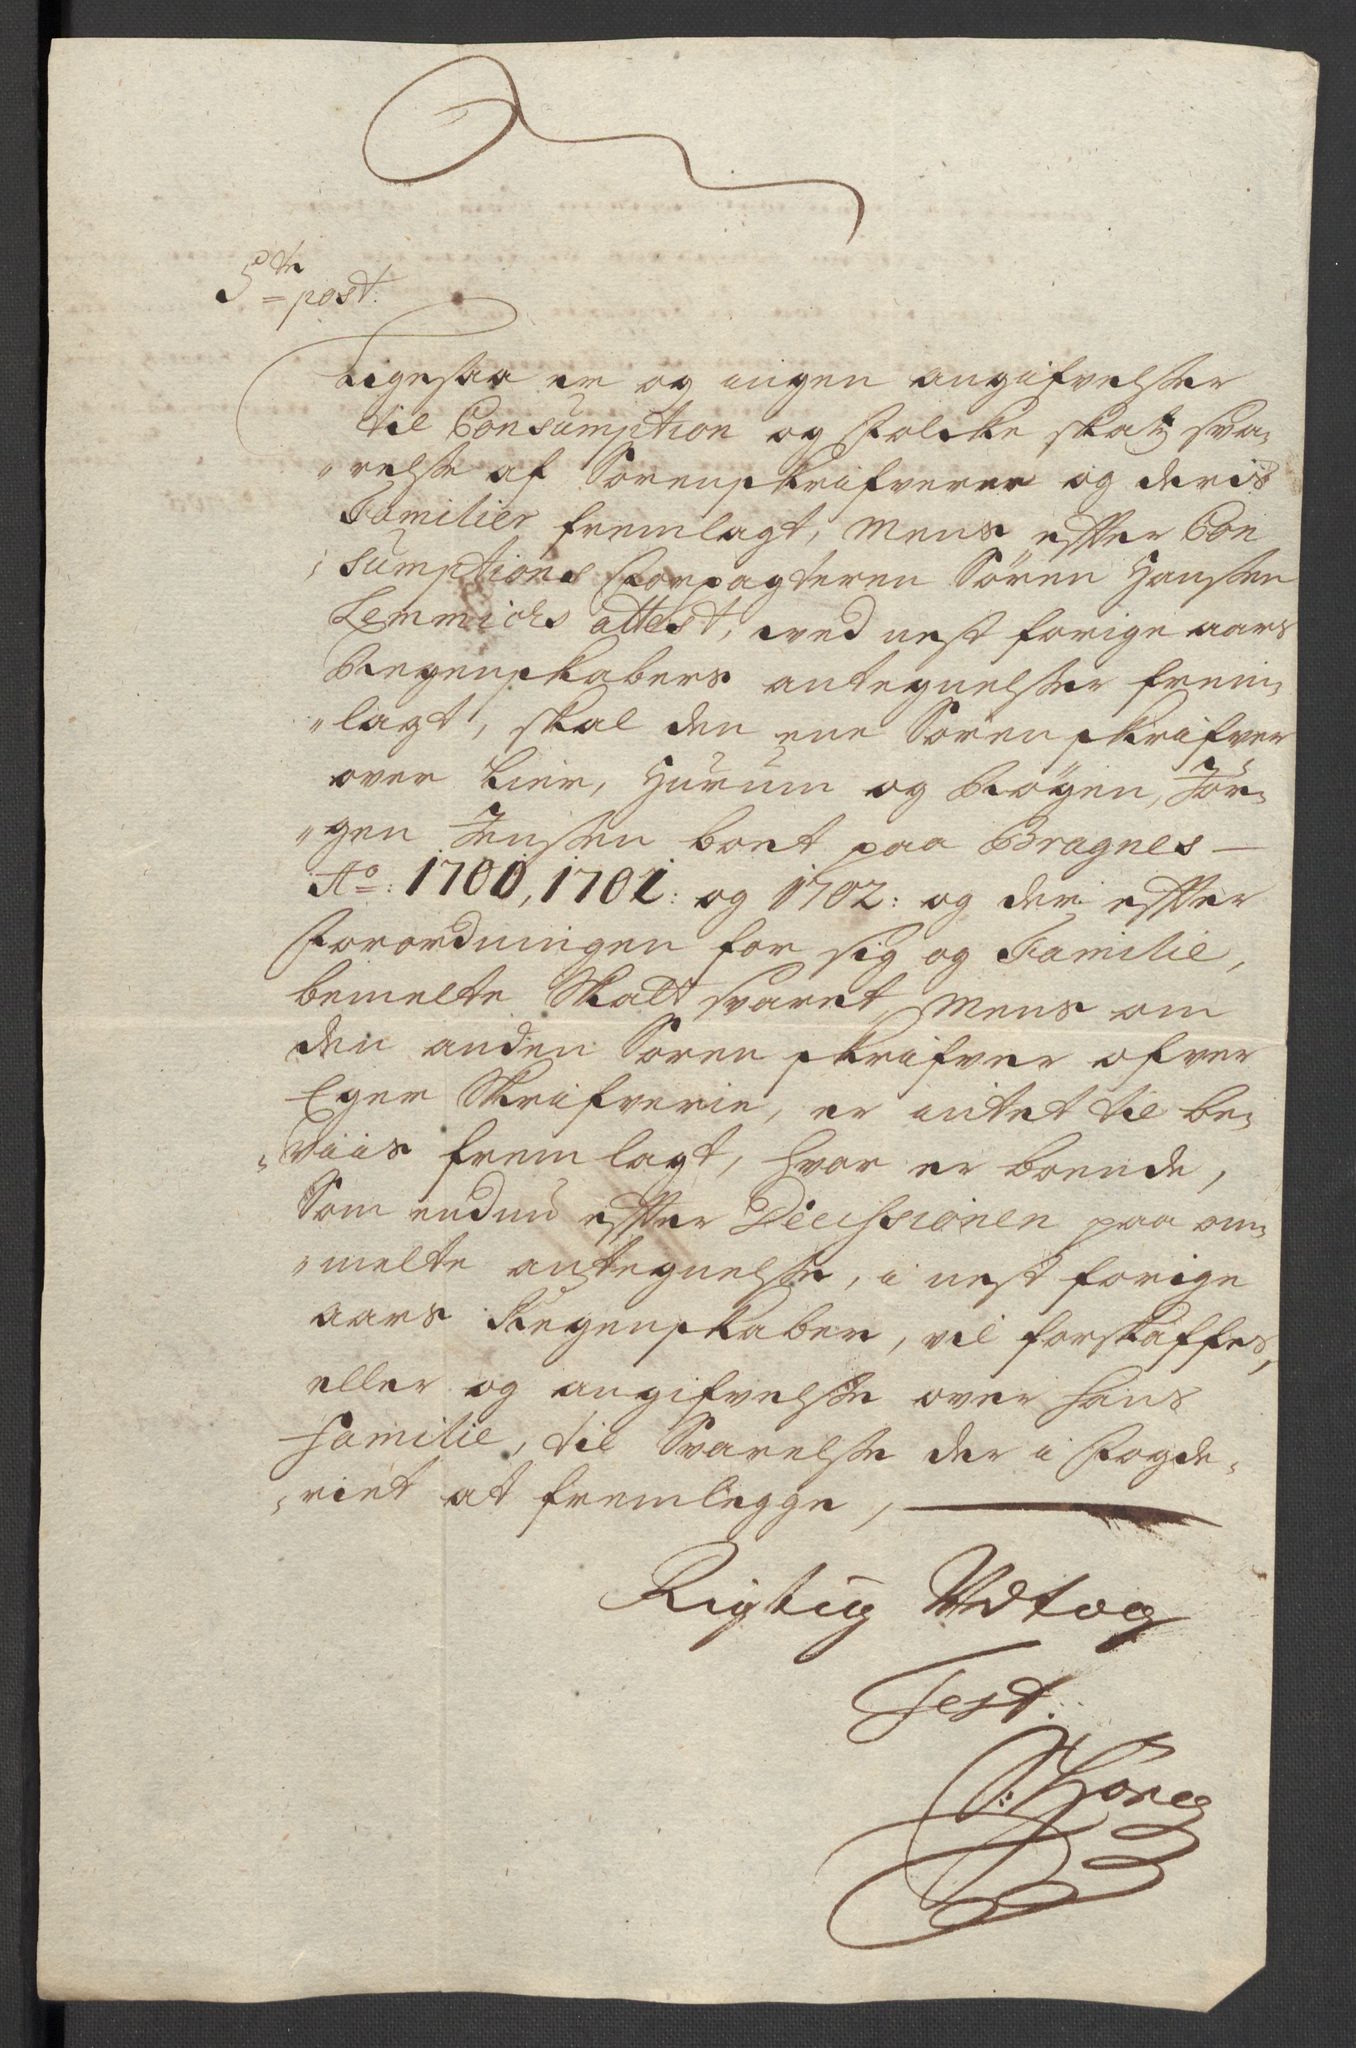 5te post.
Ligesaa er og ingen angifvelser
til Consumption og Folcke skatz sva„
„relse af Sorenskrifverer og deris
Familier fremlagt, Mens efter Con
„sumptions Forpagteren Sören Hansen
Lemmichs attest, ved nest forige aars
Regenskabers antegnelser frem„
„lagt, skal den ene Sorenskrifver
over Lier, Hurum og Rögen, Jör„
„gen Jensen boet paa Bragnes —
Ao: 1700, 1701: og 1702: og der efter
Forordningen for sig og Familie,
bemelte Skatt svaret, Mens om
den anden Sorenskrifver ofver
Eger Skrifverie, er intet til be„
„viis fremlagt, hvor er boende,
Som endnu efter Decissionen paa om„
„melte antegnelse, i nest forige
aars Regenskaber, vil forskaffes,
eller og angifvelse over hans
Familie, til Svarelse der i Fogde„
„riet at fremlegge,
Rigtig Udtog
Test: